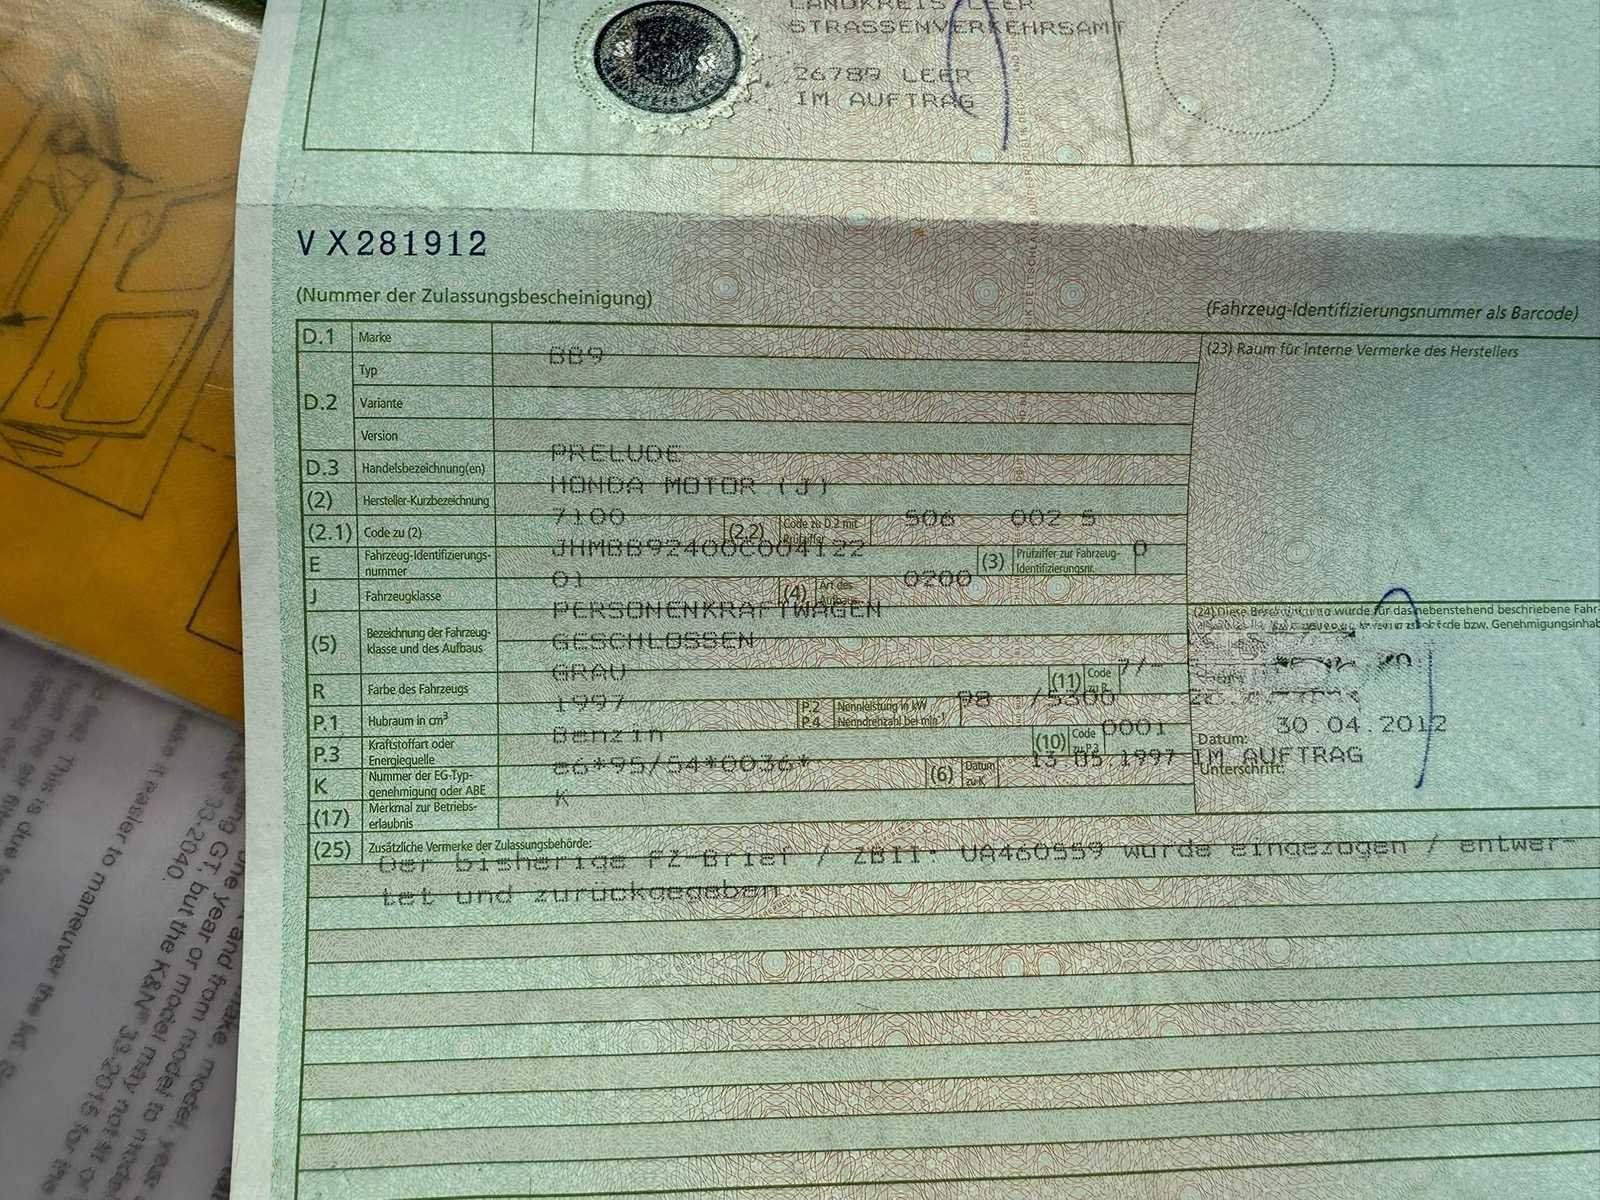 LANDKREIS LEER
STRASSENVERKEHRSAMT
26789 LEER
IM AUFTRAG
VX281912
(Nummer der Zulassungsbescheinigung)
(Fahrzeug-Identifizierungsnummer als Barcode)
D.1 Marke
(23) Raum für interne Vermerke des Herstellers
BB9
D.2 Typ
Variante
Version
PRELUDE
D.3 Handelsbezeichnung(en)
HONDA MOTOR (J)
(2) Hersteller-Kurzbezeichnung
7100 506 002 5
(2.1) Code zu (2) (2.2) Code zu D.2 mit Prüfziffer
JHMBB92400C004122 0
E Fahrzeug-Identifizierungs-
nummer
(3) Prüfziffer zur Fahrzeug-
Identifizierungsnr.
01 0200
J Fahrzeugklasse (4) Art des Aufbaus
PERSONENKRAFTWAGEN
(24) Diese wurde für das nebenstehend beschriebene Fahr-
bzw. Genehmigungsinhab
(5) Bezeichnung der Fahrzeug-
klasse und des Aufbaus
GESCHLOSSEN
GRAU 7/-
R Farbe des Fahrzeugs (11) Code zu R
1997 98 /5300
P.1 Hubraum in cm³ P.2 Nennleistung in kW
P.4 Nenndrehzahl bei min⁻¹
30.04.2012
Datum:
Benzin 0001
P.3 Kraftstoffart oder
Energiequelle
(10) Code zu P.3
e6*95/54*0036* 13.05.1997
IM AUFTRAG
Unterschrift:
K Nummer der EG-Typ-
genehmigung oder ABE
(6) Datum zu K
K
(17) Merkmal zur Betriebs-
erlaubnis
(25) Zusätzliche Vermerke der Zulassungsbehörde:
Der bisherige FZ-Brief / ZBII: UA460559 wurde eingezogen / entwer-
tet und zurückgegeben
easier to maneuver the
make, model, year
and from model to model
year or model may not fit
GT, but the K&N® 33-2015 for the
33-2040.
This is due